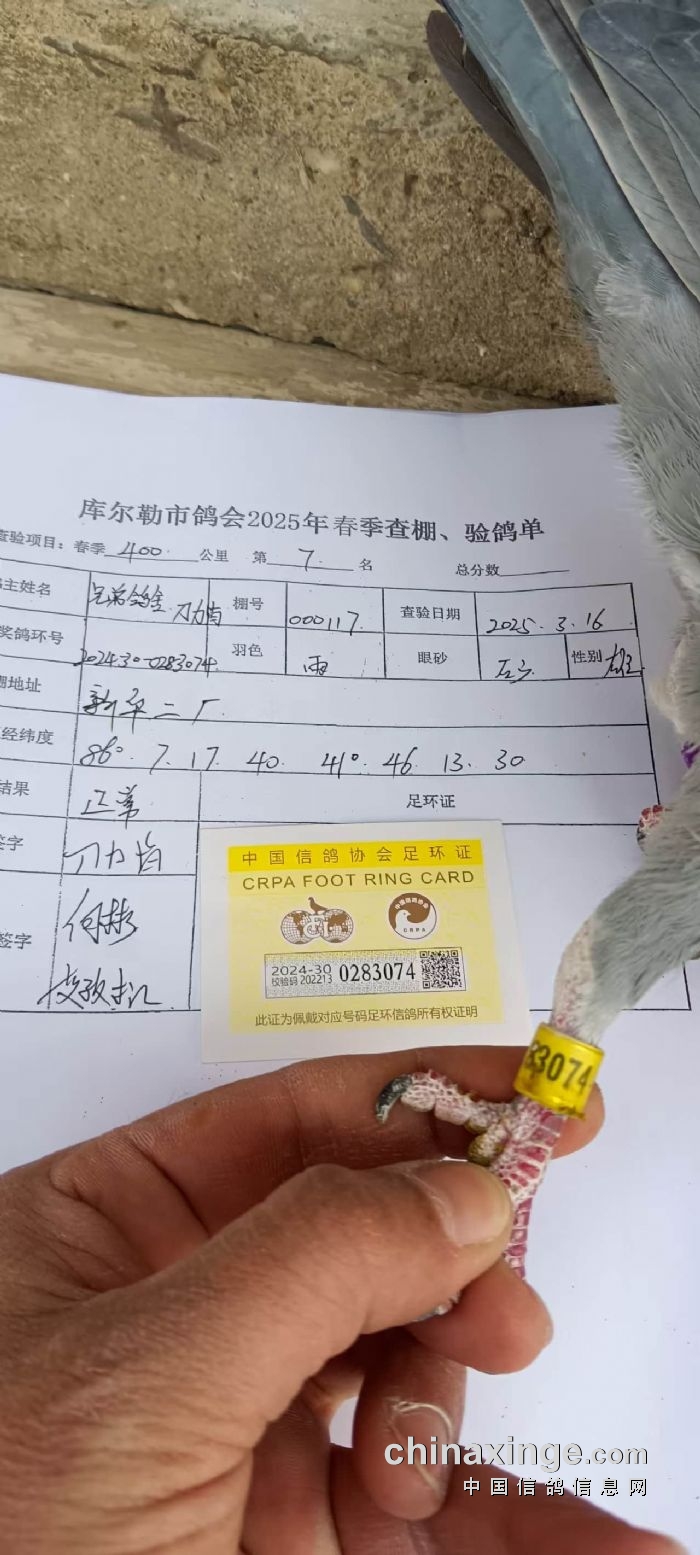 库尔勒市鸽会2025年春季查棚、验鸽单
查验项目：春季 400 公里 第 7 名 总分数
主姓名 兄弟鸽舍 刀力肯 棚号 000117 查验日期 2025.3.16
奖鸽环号 2024.30-0283074 羽色 雨 眼砂 性别 雄
棚地址 新华二厂
经纬度 86° 7. 17. 40 41° 46 13. 30
结果 正常 足环证
签字
签字 何彬
中国信鸽协会足环证
CRPA FOOT RING CARD
CRPA
2024-30 0283074
校验码 202213
此证为佩戴对应号码足环信鸽所有权证明
83074
chinaxinge.com
中国信鸽信息网